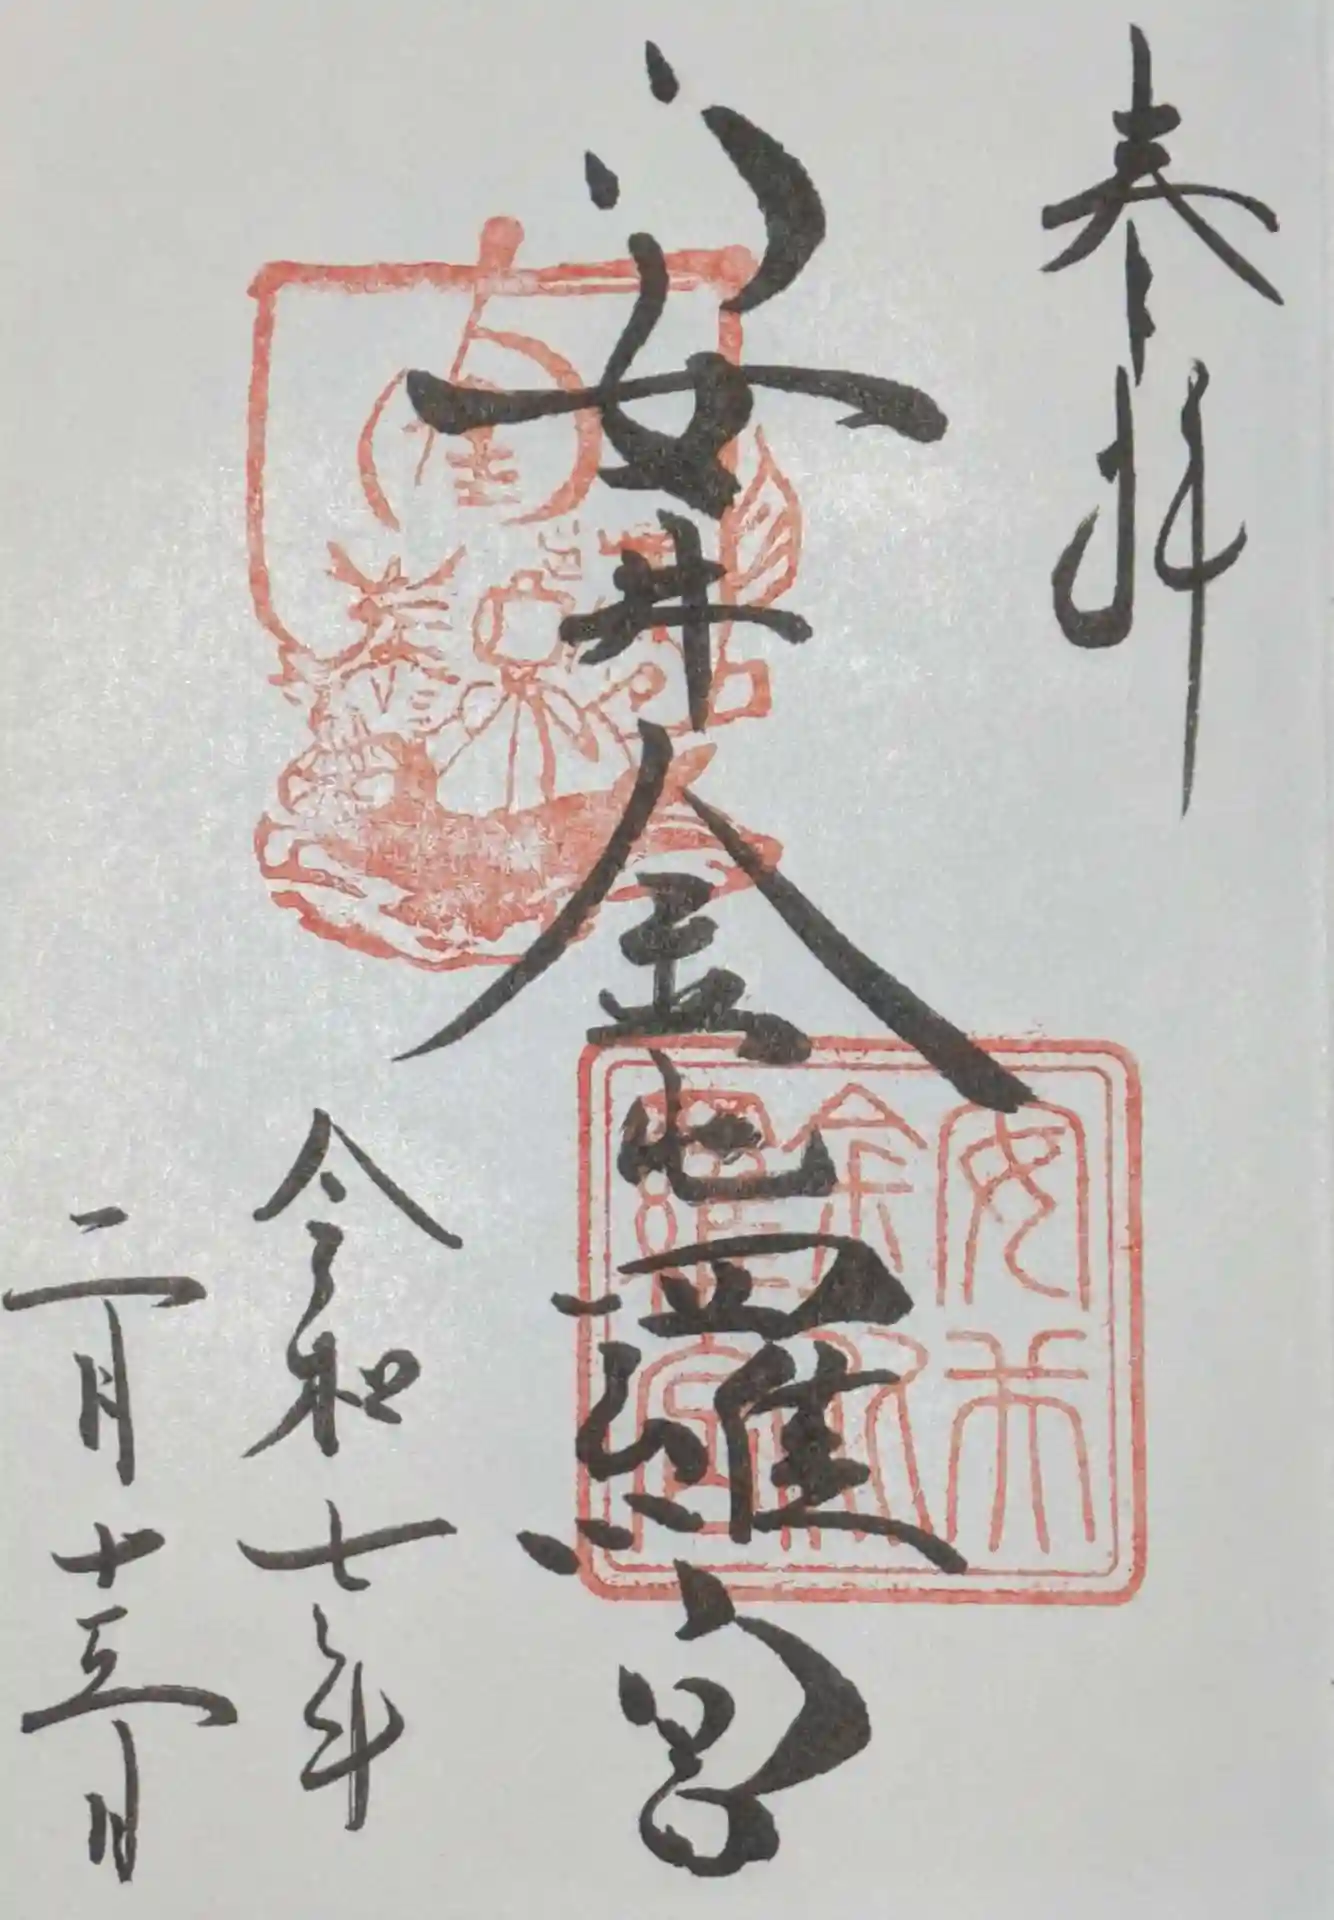 奉拝
安井金比羅宮
令和七年
二月十五日
安井
金比
羅宮
金